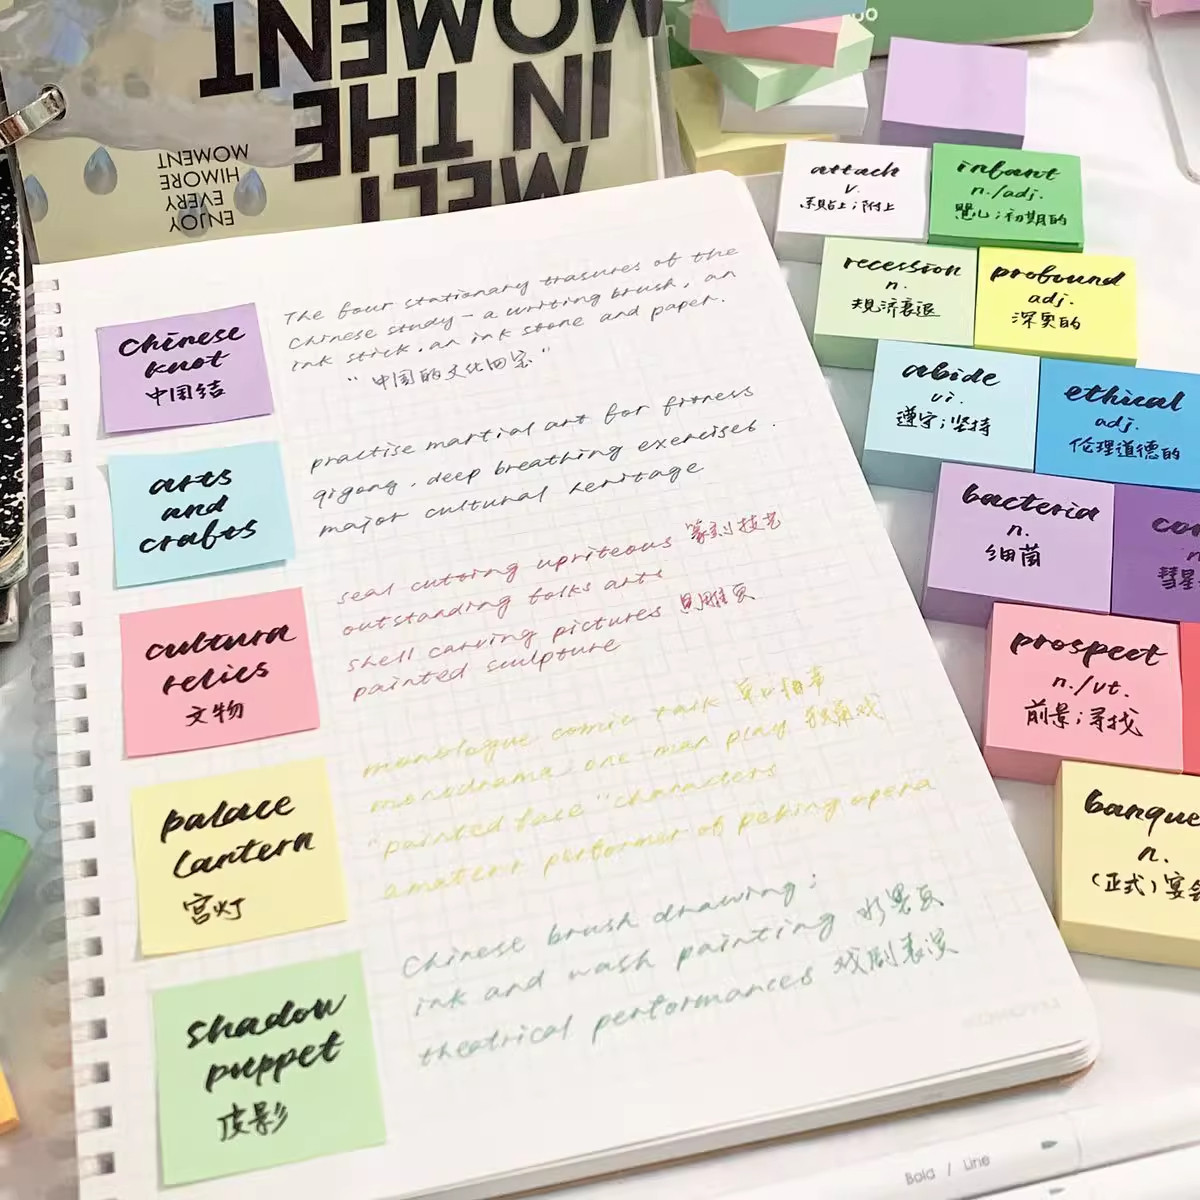 MELT
IN THE
MOMENT
ENJOY
EVERY
HIMORE
MOMENT
chinese
knot
中国结
The four stationary trasures of the
Chinese study - a writing brush, an
ink stick, an ink stone and paper.
"中国的文化四宝"
arts
and
crafts
practise martial art for fitness
qigong, deep breathing exercises.
major cultural heritage
cultura
relics
文物
seal cutting upriteous 篆刻技艺
outstanding folks arts
shell carving pictures 贝雕画
painted sculpture
palace
lantern
宫灯
monologue comic talk 单口相声
monodrama one-man play 独角戏
"painted face" characters
amateur performer of peking opera
shadow
puppet
皮影
Chinese brush drawing;
ink and wash painting 水墨画
theatrical performances 戏剧表演
attach
v.
系贴上;附上
infant
n./adj.
婴儿;初期的
recession
n.
衰退
profound
adj.
深奥的
abide
vi.
遵守;坚持
ethical
adj.
伦理道德的
bacteria
n.
细菌
com
彗星
prospect
n./vt.
前景;寻找
banque
n.
(正式)宴会
Bold / Line